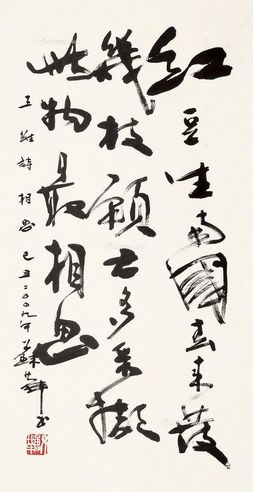 紅豆生南國春來發
幾枝願君多采擷
此物最相思
王維詩相思 己丑二〇〇九年蘇